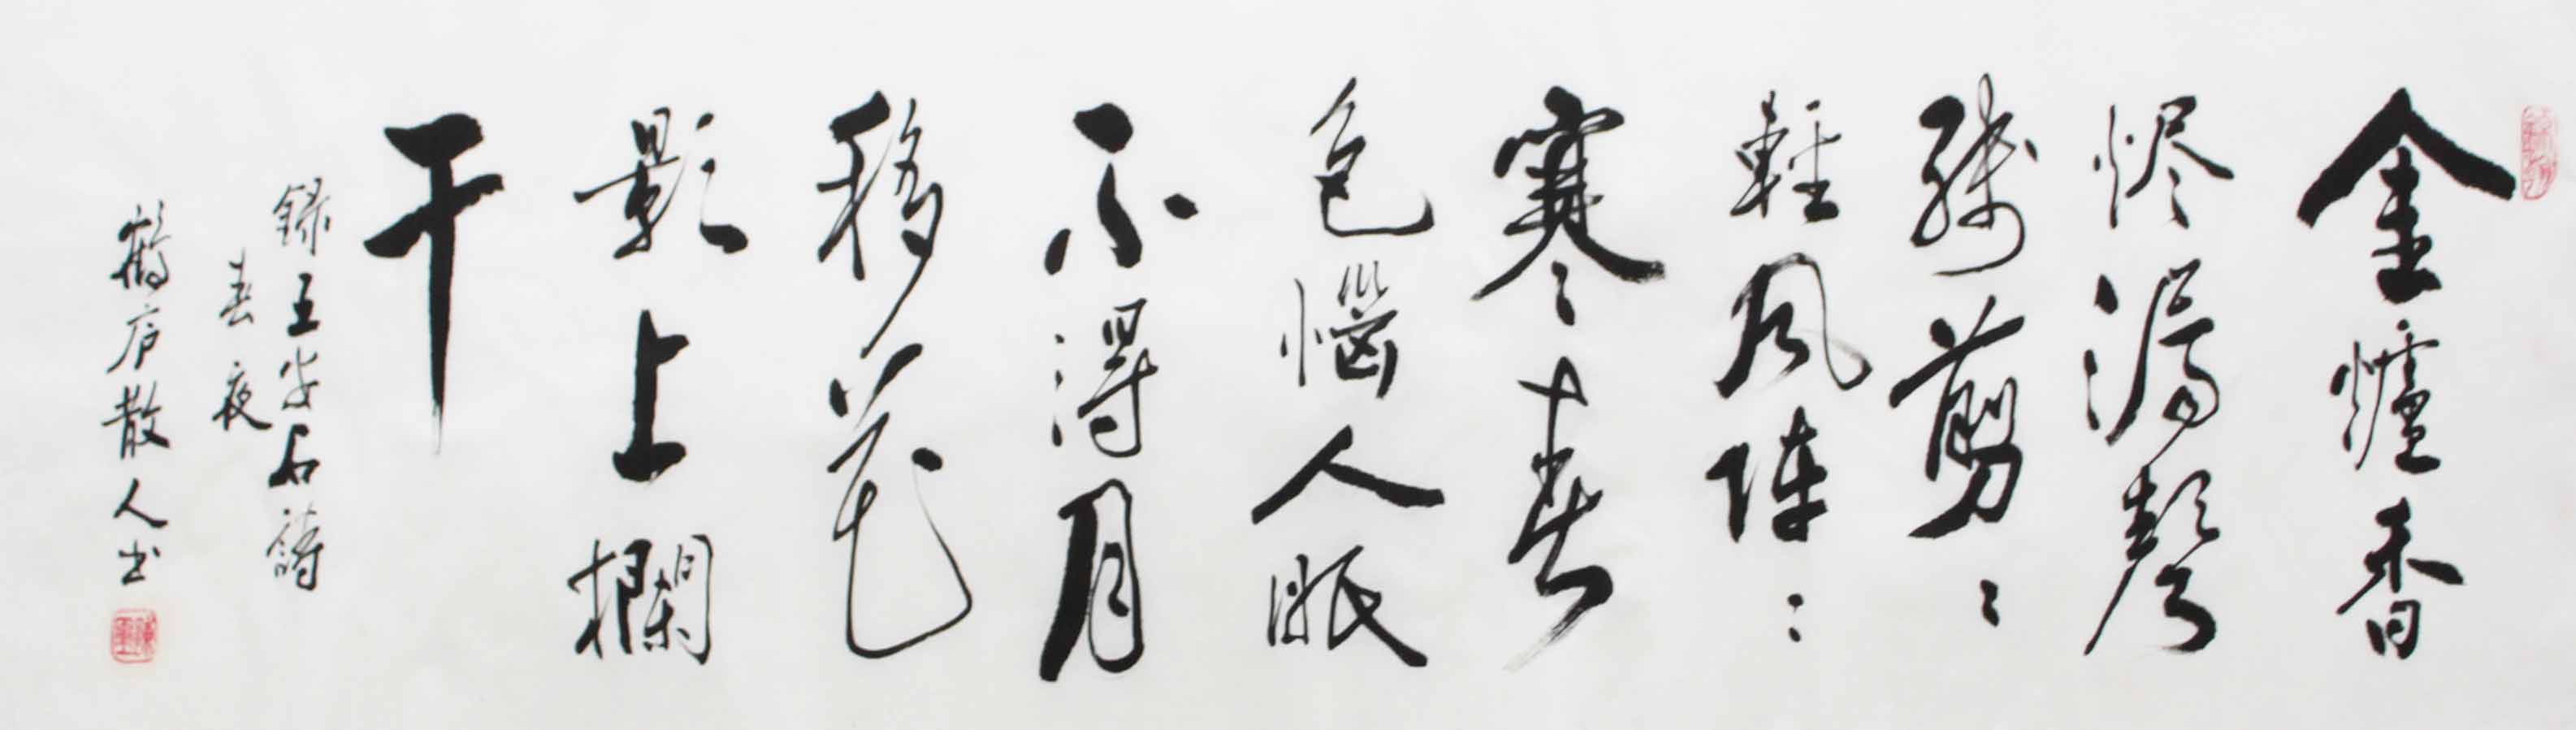 金爐香
烬漏聲
殘剪〻
輕風陣〻
寒〻春
色惱人眠
不得月
移花
影上欄
干
錄王安石詩
春夜
鶴廬散人书